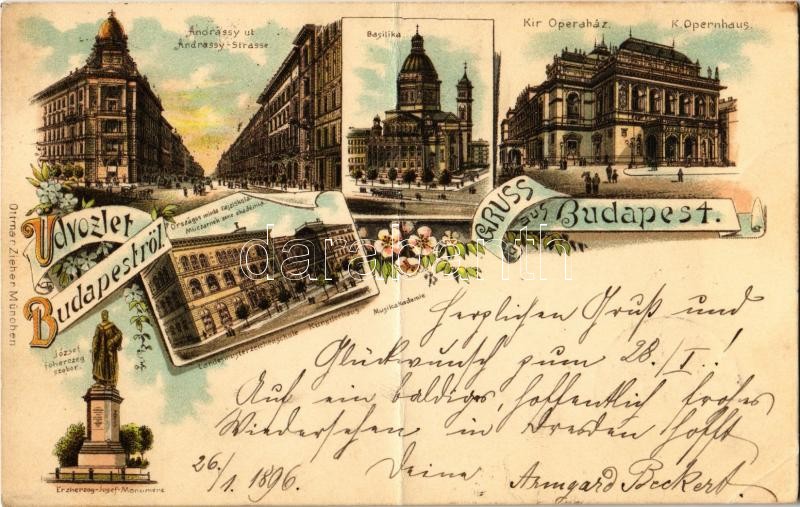 Andrássy ut
Andrassy-Strasse
Basilika
Kir Operaház. K. Opernhaus.
Üdvözlet
Budapestről.
Országos minta rajziskola
Műcsarnok zene akadémia
Künstlerhaus
Musikakademie
GRUSS
aus Budapest.
Ottmar Zieher München
József
főherczeg
szobor.
Erzherzog-Josef-Monument
darabanth
Herzlichen Gruß und
Glückwunsch zum 28./I.!
Auf ein baldiges, hoffentlich frohes
Wiedersehen in Dresden hofft
26./1. 1896. Deine Armgard Beckert.